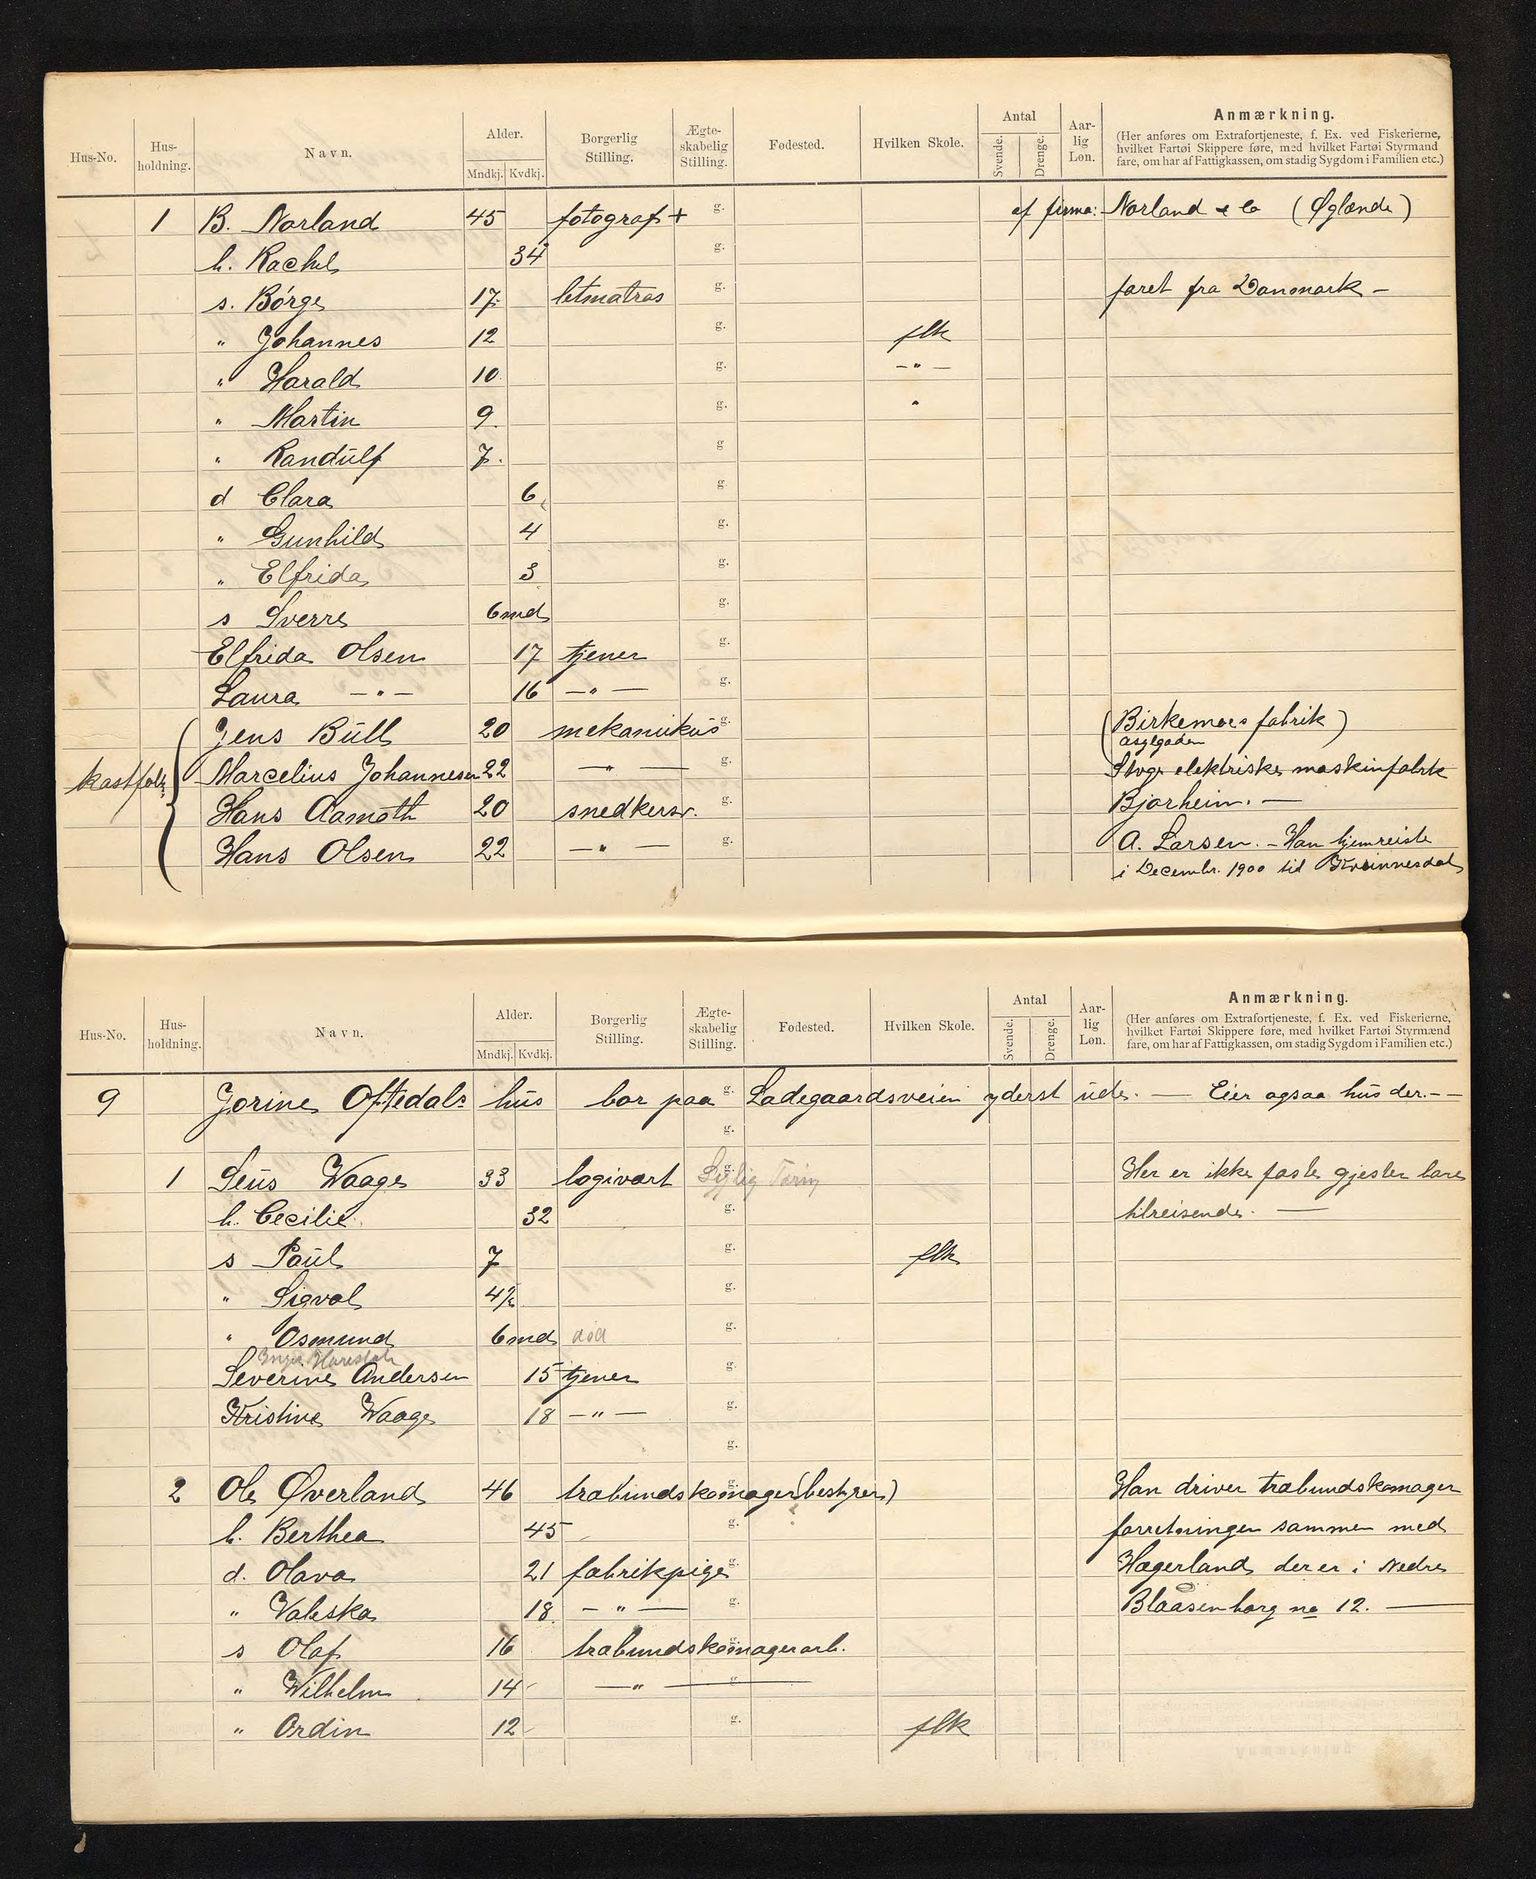 Hus-No. Hus-holdning. Navn. Alder. Mndkj. Kvdkj. Borgerlig Stilling. Ægte-skabelig Stilling. Fødested. Hvilken Skole. Antal Svende. Drenge. Aar-lig Løn. Anmærkning.
(Her anføres om Extrafortjeneste, f. Ex. ved Fiskerierne, hvilket Fartøi Skippere føre, med hvilket Fartøi Styrmænd fare, om har af Fattigkassen, om stadig Sygdom i Familien etc.)
1 B. Norland 45 fotograf + g. af firma: Norland & Co (Øglænde)
h. Rachel 34 g.
s. Børge 17. letmatros g. faret fra Danmark –
" Johannes 12 g. flk
" Harald 10 g. – " –
" Martin 9. g. "
" Randulf 7. g
d Clara 6 g.
" Gunhild 4 g.
" Elfrida 3 g.
s Sverre 6 md g.
Elfrida Olsen 17 tjener g.
Laura – " – 16 – " – g.
Jens Bull 20 mekanikus g. (Birkemoes fabrik)
Asylgaden
kostfolk Marcelius Johannesen 22 – " – g. elektriske maskinfabrik
Hans Aamoth 20 snedkersv. g. Bjorheim. –
Hans Olsen 22 – " – g. A. Larsen. – Han hjemreiste
i Decembr. 1900 til Kvinnesdal
Hus-No. Hus-holdning. Navn. Alder. Mndkj. Kvdkj. Borgerlig Stilling. Ægte-skabelig Stilling. Fødested. Hvilken Skole. Antal Svende. Drenge. Aar-lig Løn. Anmærkning.
(Her anføres om Extrafortjeneste, f. Ex. ved Fiskerierne, hvilket Fartøi Skippere føre, med hvilket Fartøi Styrmænd fare, om har af Fattigkassen, om stadig Sygdom i Familien etc.)
9 Jorine Oftedals hus bor paa g. Ladegaardsveien yderst ude. — Eier ogsaa hus der. – –
g.
1 Waage 33 logivært g. Her er ikke faste gjester bare
h. Cecilie 32 g. tilreisende. —
s Paul 7 g. flk
" Sigval 4½ g.
" Osmund 6 md død g.
Severine Andersen 15 tjener g.
Kristine Waage 18 – " – g.
g.
2 Ole Øverland 46 træbundskomager (bestyrer) g. Han driver træbundskomager
h. Berthea 45 g. forretningen sammen med
d. Olava 21 fabrikpige g. Hægerland der er i Nedre
" Valeska 18 – " – g. Blaasenborg no 12. —
s Olaf 16 træbundskomagerarb. g.
" Wilhelm 14 – " — g.
" Ordin 12 g. flk